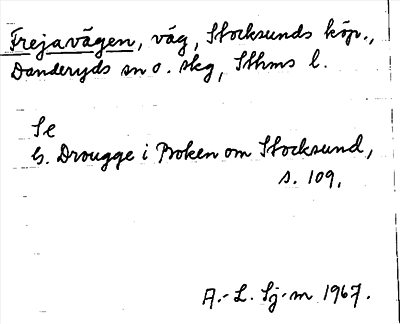 Frejavägen, väg, Stocksunds köp.,
Danderyds sn o. skg, Sthms l.
Se
G. Drougge i Boken om Stocksund,
s. 109.
A.-L. Sj-m 1967.